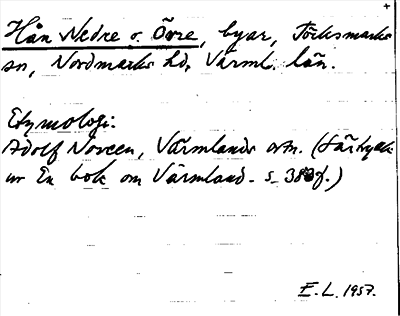 +
Hån Nedre o. Övre, byar, Töcksmarks
sn, Nordmarks hd, Värml. län.
Etymologi:
Adolf Noreen, Värmlands ortn. (Särtryck
ur En bok om Värmland. s. 38 f.)
E. L. 1957.